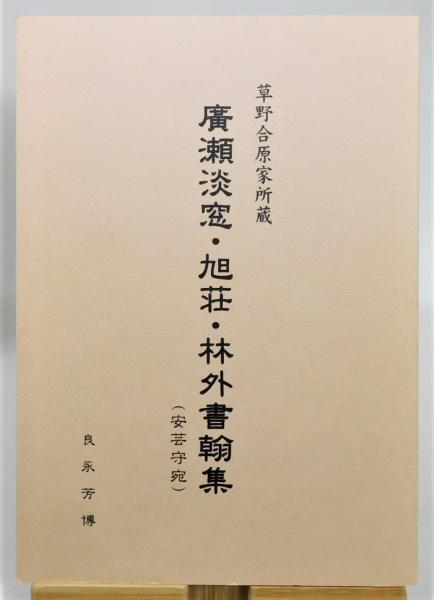 草野合原家所蔵
廣瀬淡窓・旭荘・林外書翰集
(安芸守宛)
良永芳博